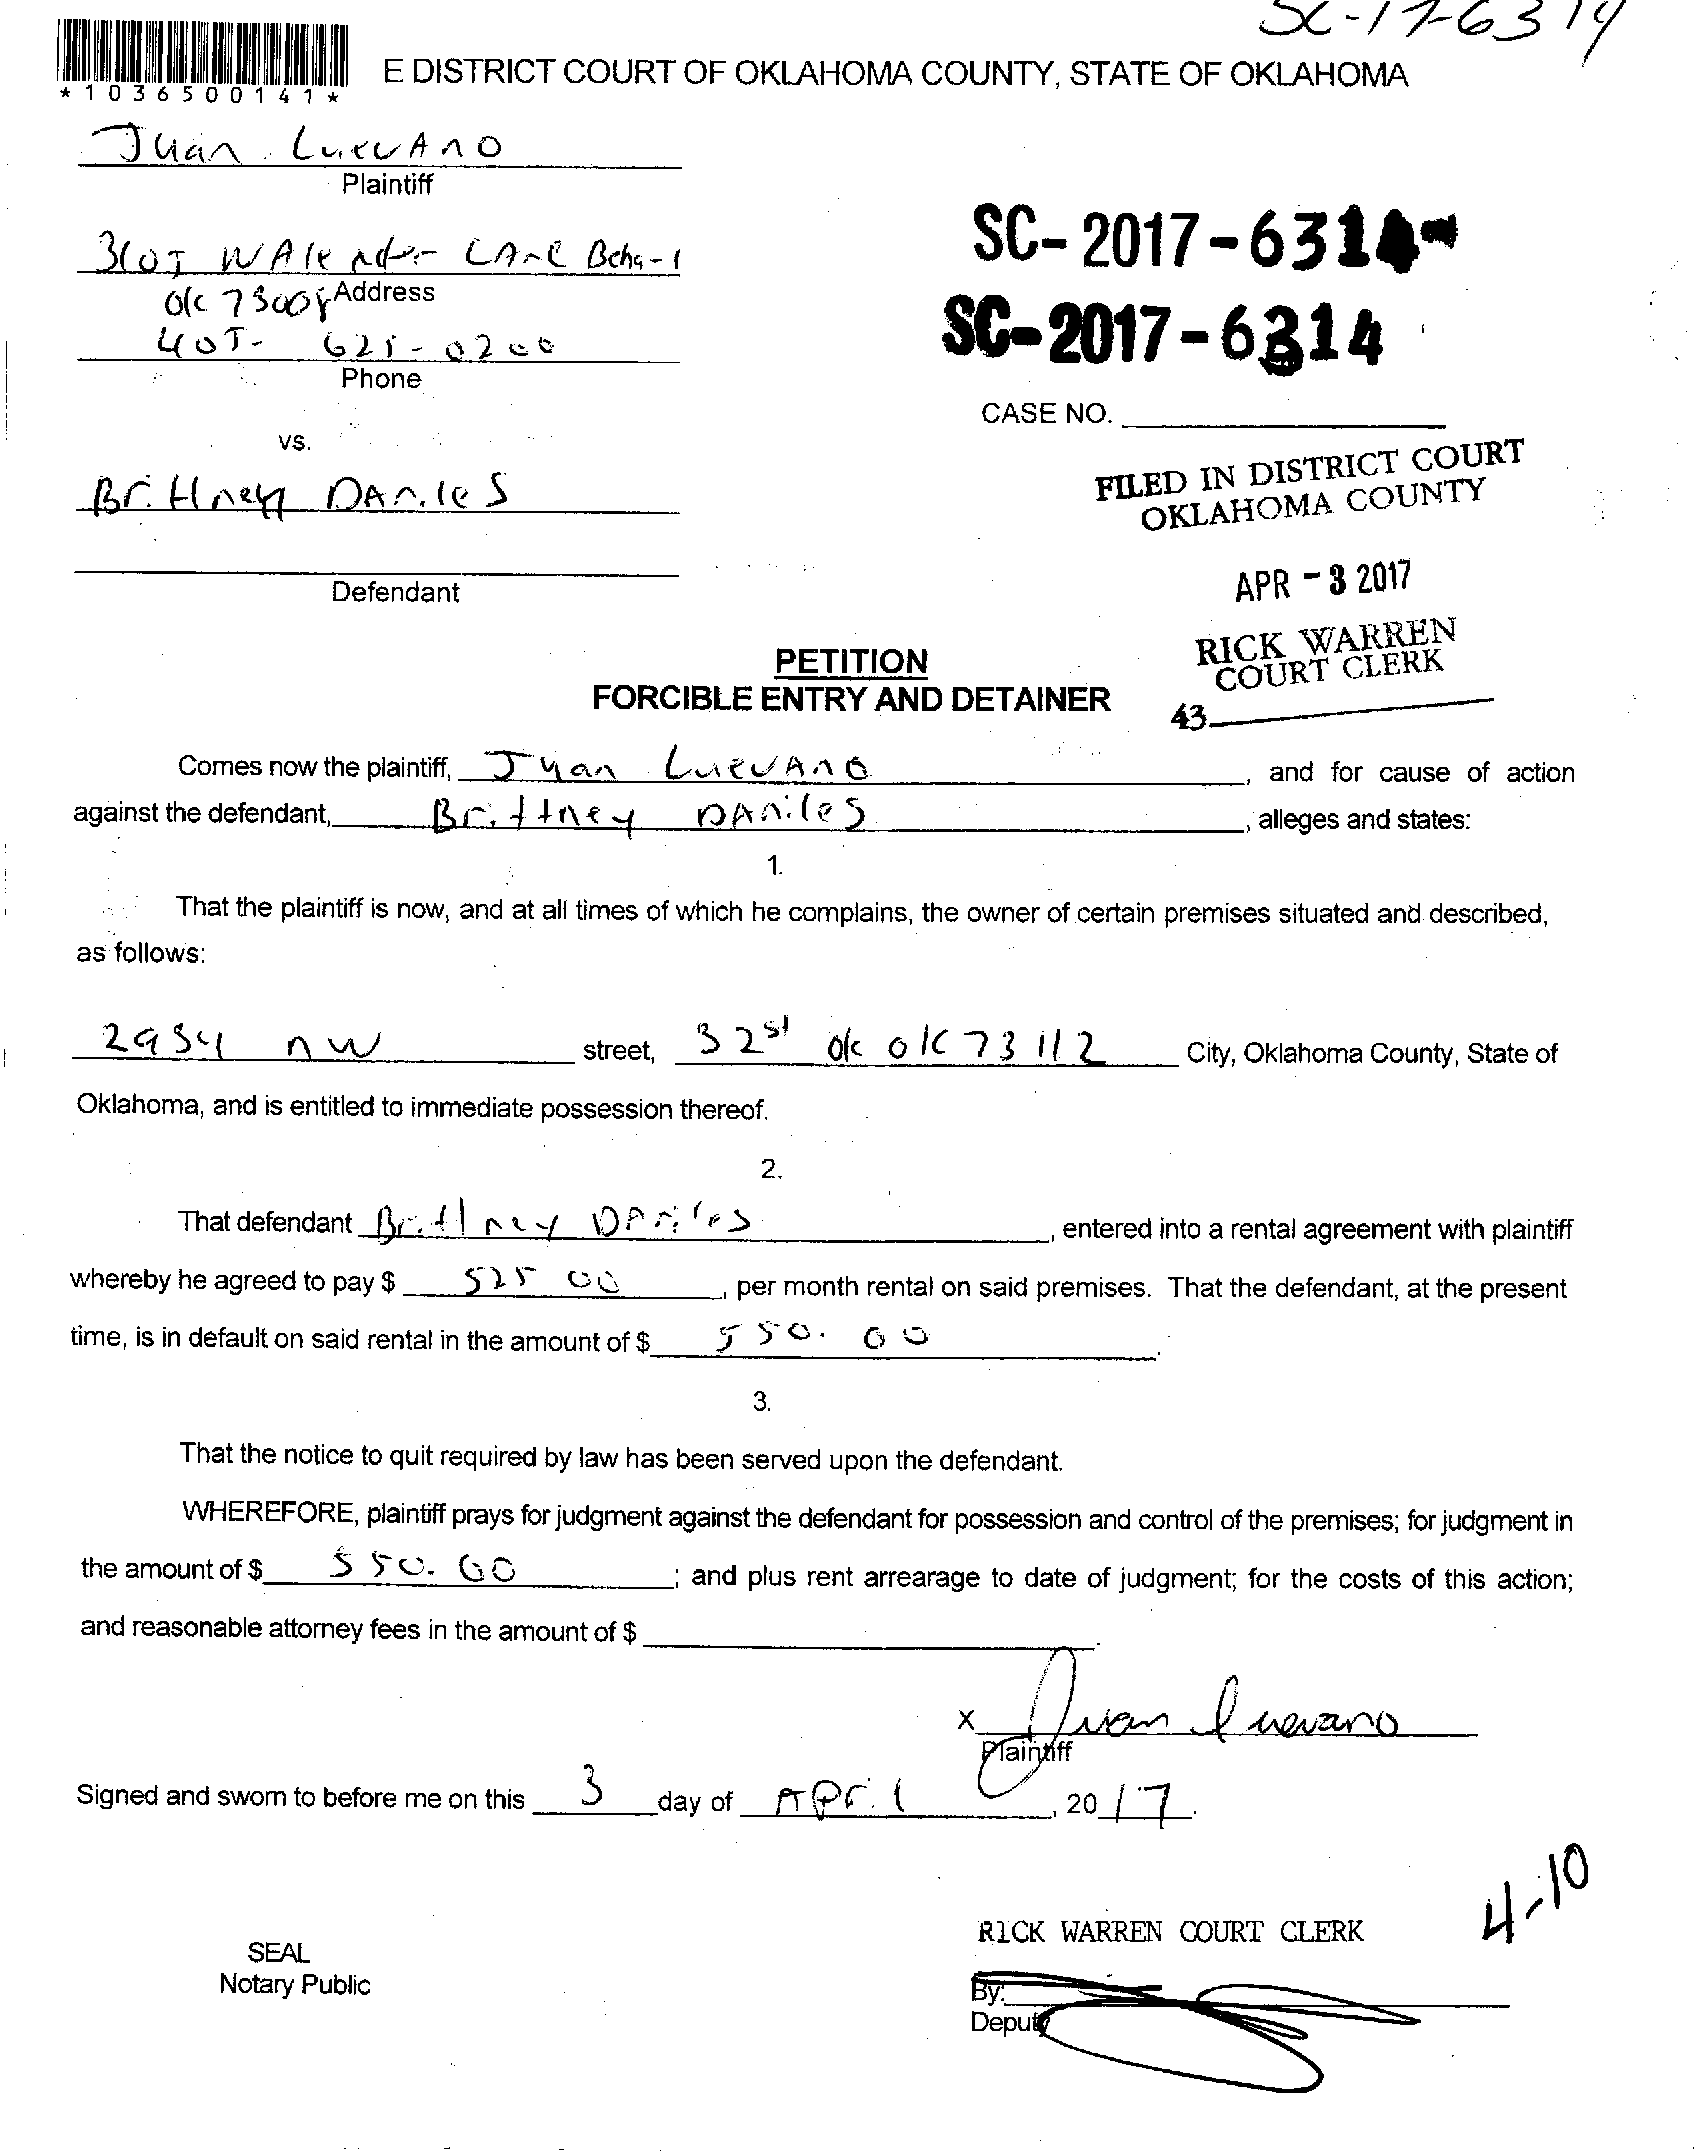 SC-17-6314
*1036500141*
E DISTRICT COURT OF OKLAHOMA COUNTY, STATE OF OKLAHOMA
Juan Luevano
Plaintiff
SC-2017-6314
SC-2017-6314
LANE
Address
405-
Phone
CASE NO.
vs.
FILED IN DISTRICT COURT
OKLAHOMA COUNTY
Brittney DAniles
APR -3 2017
Defendant
RICK WARREN
COURT CLERK
43
PETITION
FORCIBLE ENTRY AND DETAINER
Comes now the plaintiff, Juan Luevano, and for cause of action
against the defendant, Brittney DAniles, alleges and states:
1.
That the plaintiff is now, and at all times of which he complains, the owner of certain premises situated and described,
as follows:
2934 nw street, 32st ok ok 73112 City, Oklahoma County, State of
Oklahoma, and is entitled to immediate possession thereof.
2.
That defendant Brittney DAniles, entered into a rental agreement with plaintiff
whereby he agreed to pay $ 525 00, per month rental on said premises. That the defendant, at the present
time, is in default on said rental in the amount of $ 550.00.
3.
That the notice to quit required by law has been served upon the defendant.
WHEREFORE, plaintiff prays for judgment against the defendant for possession and control of the premises; for judgment in
the amount of $ 550.00; and plus rent arrearage to date of judgment; for the costs of this action;
and reasonable attorney fees in the amount of $.
x Juan Luevano
Plaintiff
Signed and sworn to before me on this 3 day of APril, 2017.
4-10
RICK WARREN COURT CLERK
SEAL
Notary Public
By:
Deputy